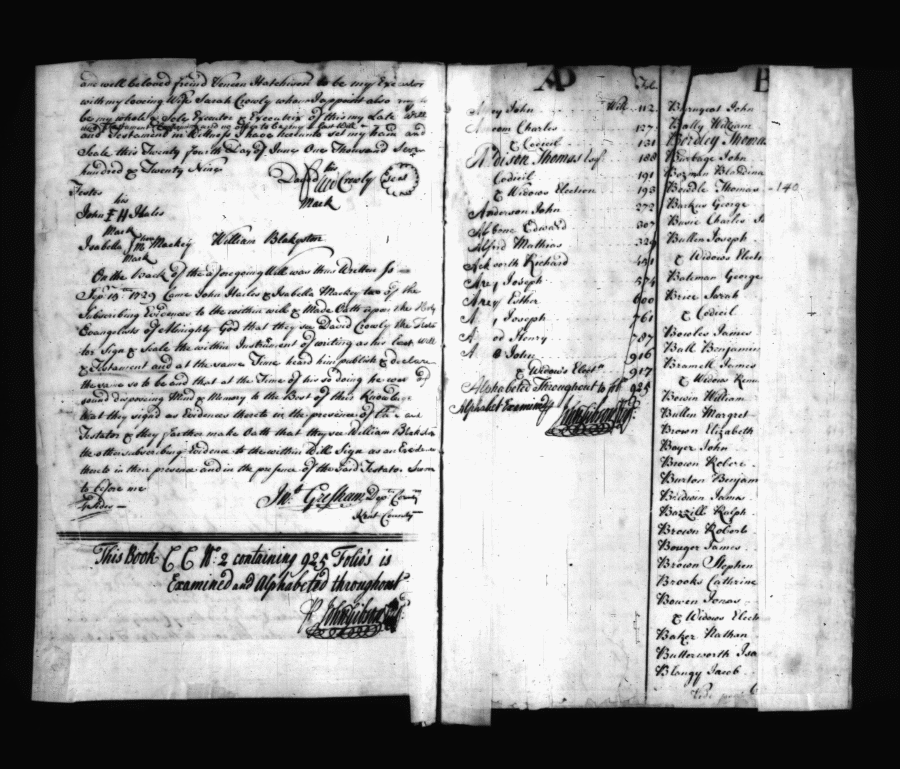 and well beloved freind Vinson Hatchison to be my Executor
with my loveing Wife Sarah Crowly whom I appoint also
be my whole & Sole Executor & Executrix of this my Last Will
and Testament in Witness I have hereunto set my hand and
Seale this Twenty fourth Day of June One Thousand Seven
hundred & Twenty Nine
his
David Crowly Seal
Mark
Testes
his
John H Hales
Mark
Isabella M Mackey William Blakiston
Mark
On the back of the aforegoing Will was thus Written
Sep. 13. 1729 Came John Hailes & Isabella Mackey two of the
Subscribing Evidences to the within will & Made Oath upon the Holy
Evangelists of Almighty God that they saw David Crowly the Testa
tor Sign & Seale the within Instrument of writing as his Last will
& Testament and at the same Time heard him publish & declare
the same so to be and that at the Time of his so doing he was of
sound disposeing Mind & Memory to the Best of their Knowledge
that they signd as Evidences thereto in the presence of the
Testator & they farther make Oath that they see William Blakiston
the other subscribing Evidence to the within Will Sign as an Evidence
thereto in their presence and in the presence of the said Testator Sworn
to before me
Jno. Gresham Depy. Comry
Kent County
This Book C C No. 2 containing 925 Folio's is
Examined and Alphabeted throughout
A
Fol.
John Will 112
Charles 127
& Codicil 131
Adison Thomas Esq 188
Codicil 191
& Widows Election 193
Anderson John 272
Abbone Edward 307
Alfrid Mathias 329
Ackworth Richard
Arey Joseph 574
Arey Esther 600
Joseph 761
Henry 787
John 916
& Widow's Elect. 917
Alphabeted Throughout to fol. 925
Alphabet Examined
B
Barngeat John
Bally William
Bordley Thomas
Burbage John
Bozman Blandina
Bowdle Thomas - 140
Barkus George
Busie Charles
Bullen Joseph
& Widows Elect
Bateman George
Bruce Sarah
& Codicil
Bowles James
Ball Benjamin
Bramell James
& Widow
Bowin William
Bullen Margret
Brown Elizabeth
Boyer John
Brown Robert
Burton Benjam
Baldwin James
Bozzill Ralph
Brown Robert
Bouger James
Brown Stephen
Brooks Cathrine
Bowen Jonas
& Widows Elect
Baker Nathan
Butterworth Isa
Blangy Jacob